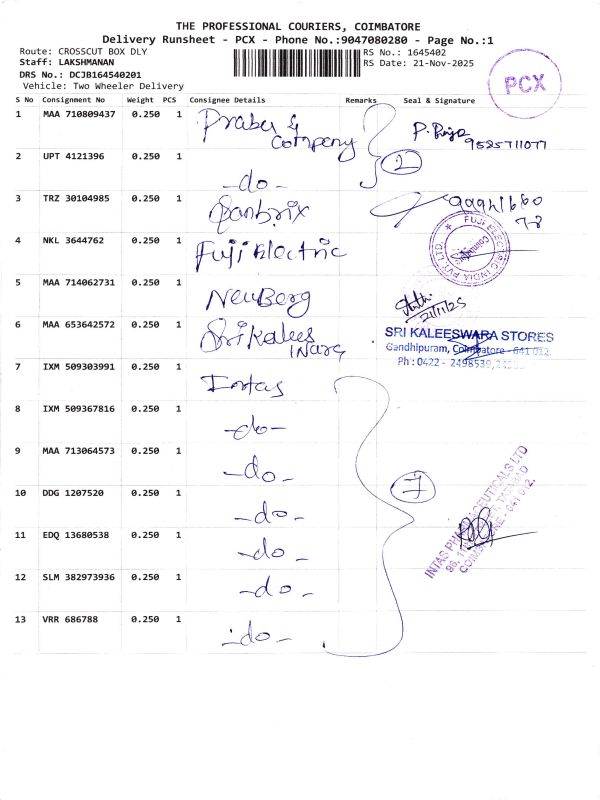 THE PROFESSIONAL COURIERS, COIMBATORE
Delivery Runsheet - PCX - Phone No.:9047080280 - Page No.:1
Route: CROSSCUT BOX DLY
RS No.: 1645402
Staff: LAKSHMANAN
RS Date: 21-Nov-2025
DRS No.: DCJB164540201
Vehicle: Two Wheeler Delivery
PCX
S No Consignment No Weight PCS Consignee Details Remarks Seal & Signature
1 MAA 710809437 0.250 1 Prabu & Company 9525711077
2 UPT 4121396 0.250 1 -do- 2
3 TRZ 30104985 0.250 1
4 NKL 3644762 0.250 1 Fuji Electric
FUJI ELECTRIC INDIA PVT. LTD.
5 MAA 714062731 0.250 1 NeuBerg 21/11/25
6 MAA 653642572 0.250 1 Sri Kalees
SRI KALEESWARA STORES
Gandhipuram, Coimbatore - 641 012.
Ph : 0422 - 2498530,
7 IXM 509303991 0.250 1 Intas
8 IXM 509367816 0.250 1 -do-
9 MAA 713064573 0.250 1 -do-
10 DDG 1207520 0.250 1 -do- 7
11 EDQ 13680538 0.250 1 -do-
INTAS PHARMACEUTICALS LTD
COIMBATORE - 641 012.
12 SLM 382973936 0.250 1 -do-
13 VRR 686788 0.250 1 -do-